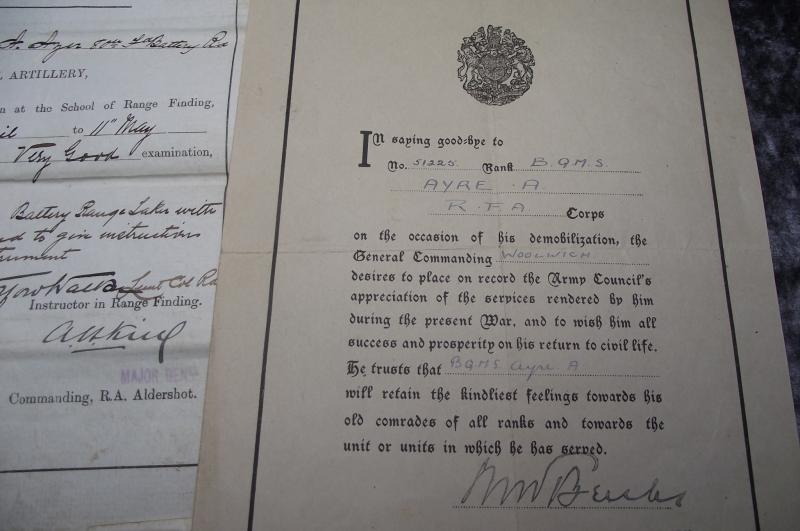 A. Ayer 80th Fd Battery RA
ARTILLERY,
at the School of Range Finding,
to 11th May
Very Good examination,
Battery Range Taker with
to give instructions
Lieut Col RA
Instructor in Range Finding.
MAJOR GENL
Commanding, R.A. Aldershot.
In saying good-bye to
No. 51225. Rank B.Q.M.S.
AYRE A.
R.F.A Corps
on the occasion of his demobilization, the
General Commanding WOOLWICH
desires to place on record the Army Council's
appreciation of the services rendered by him
during the present War, and to wish him all
success and prosperity on his return to civil life.
He trusts that BQMS Ayre A
will retain the kindliest feelings towards his
old comrades of all ranks and towards the
unit or units in which he has served.